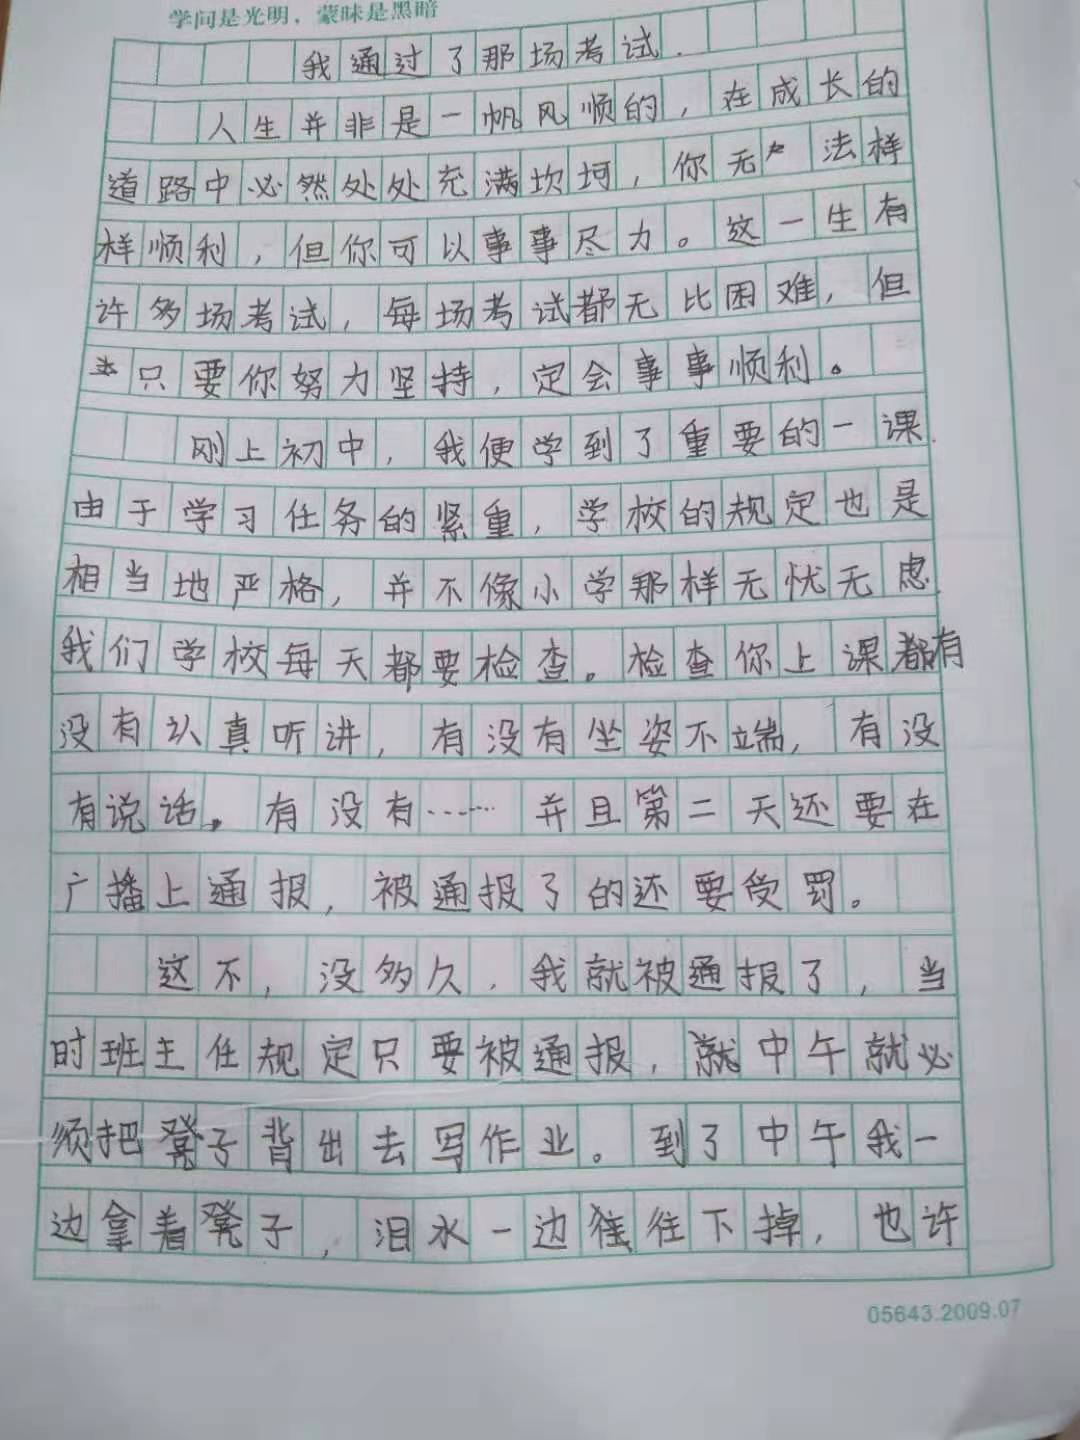 学问是光明，蒙昧是黑暗
我通过了那场考试.
人生并非是一帆风顺的，在成长的
道路中必然处处充满坎坷，你无法样
样顺利，但你可以事事尽力。这一生有
许多场考试，每场考试都无比困难，但
只要你努力坚持，定会事事顺利。
刚上初中，我便学到了重要的一课.
由于学习任务的紧重，学校的规定也是
相当地严格，并不像小学那样无忧无虑.
我们学校每天都要检查。检查你上课都有
没有认真听讲，有没有坐姿不端，有没
有说话。有没有……并且第二天还要在
广播上通报，被通报了的还要受罚。
这不，没多久，我就被通报了，当
时班主任规定只要被通报，就中午就必
须把凳子背出去写作业。到了中午我一
边拿着凳子，泪水一边往下掉，也许
05643.2009.07